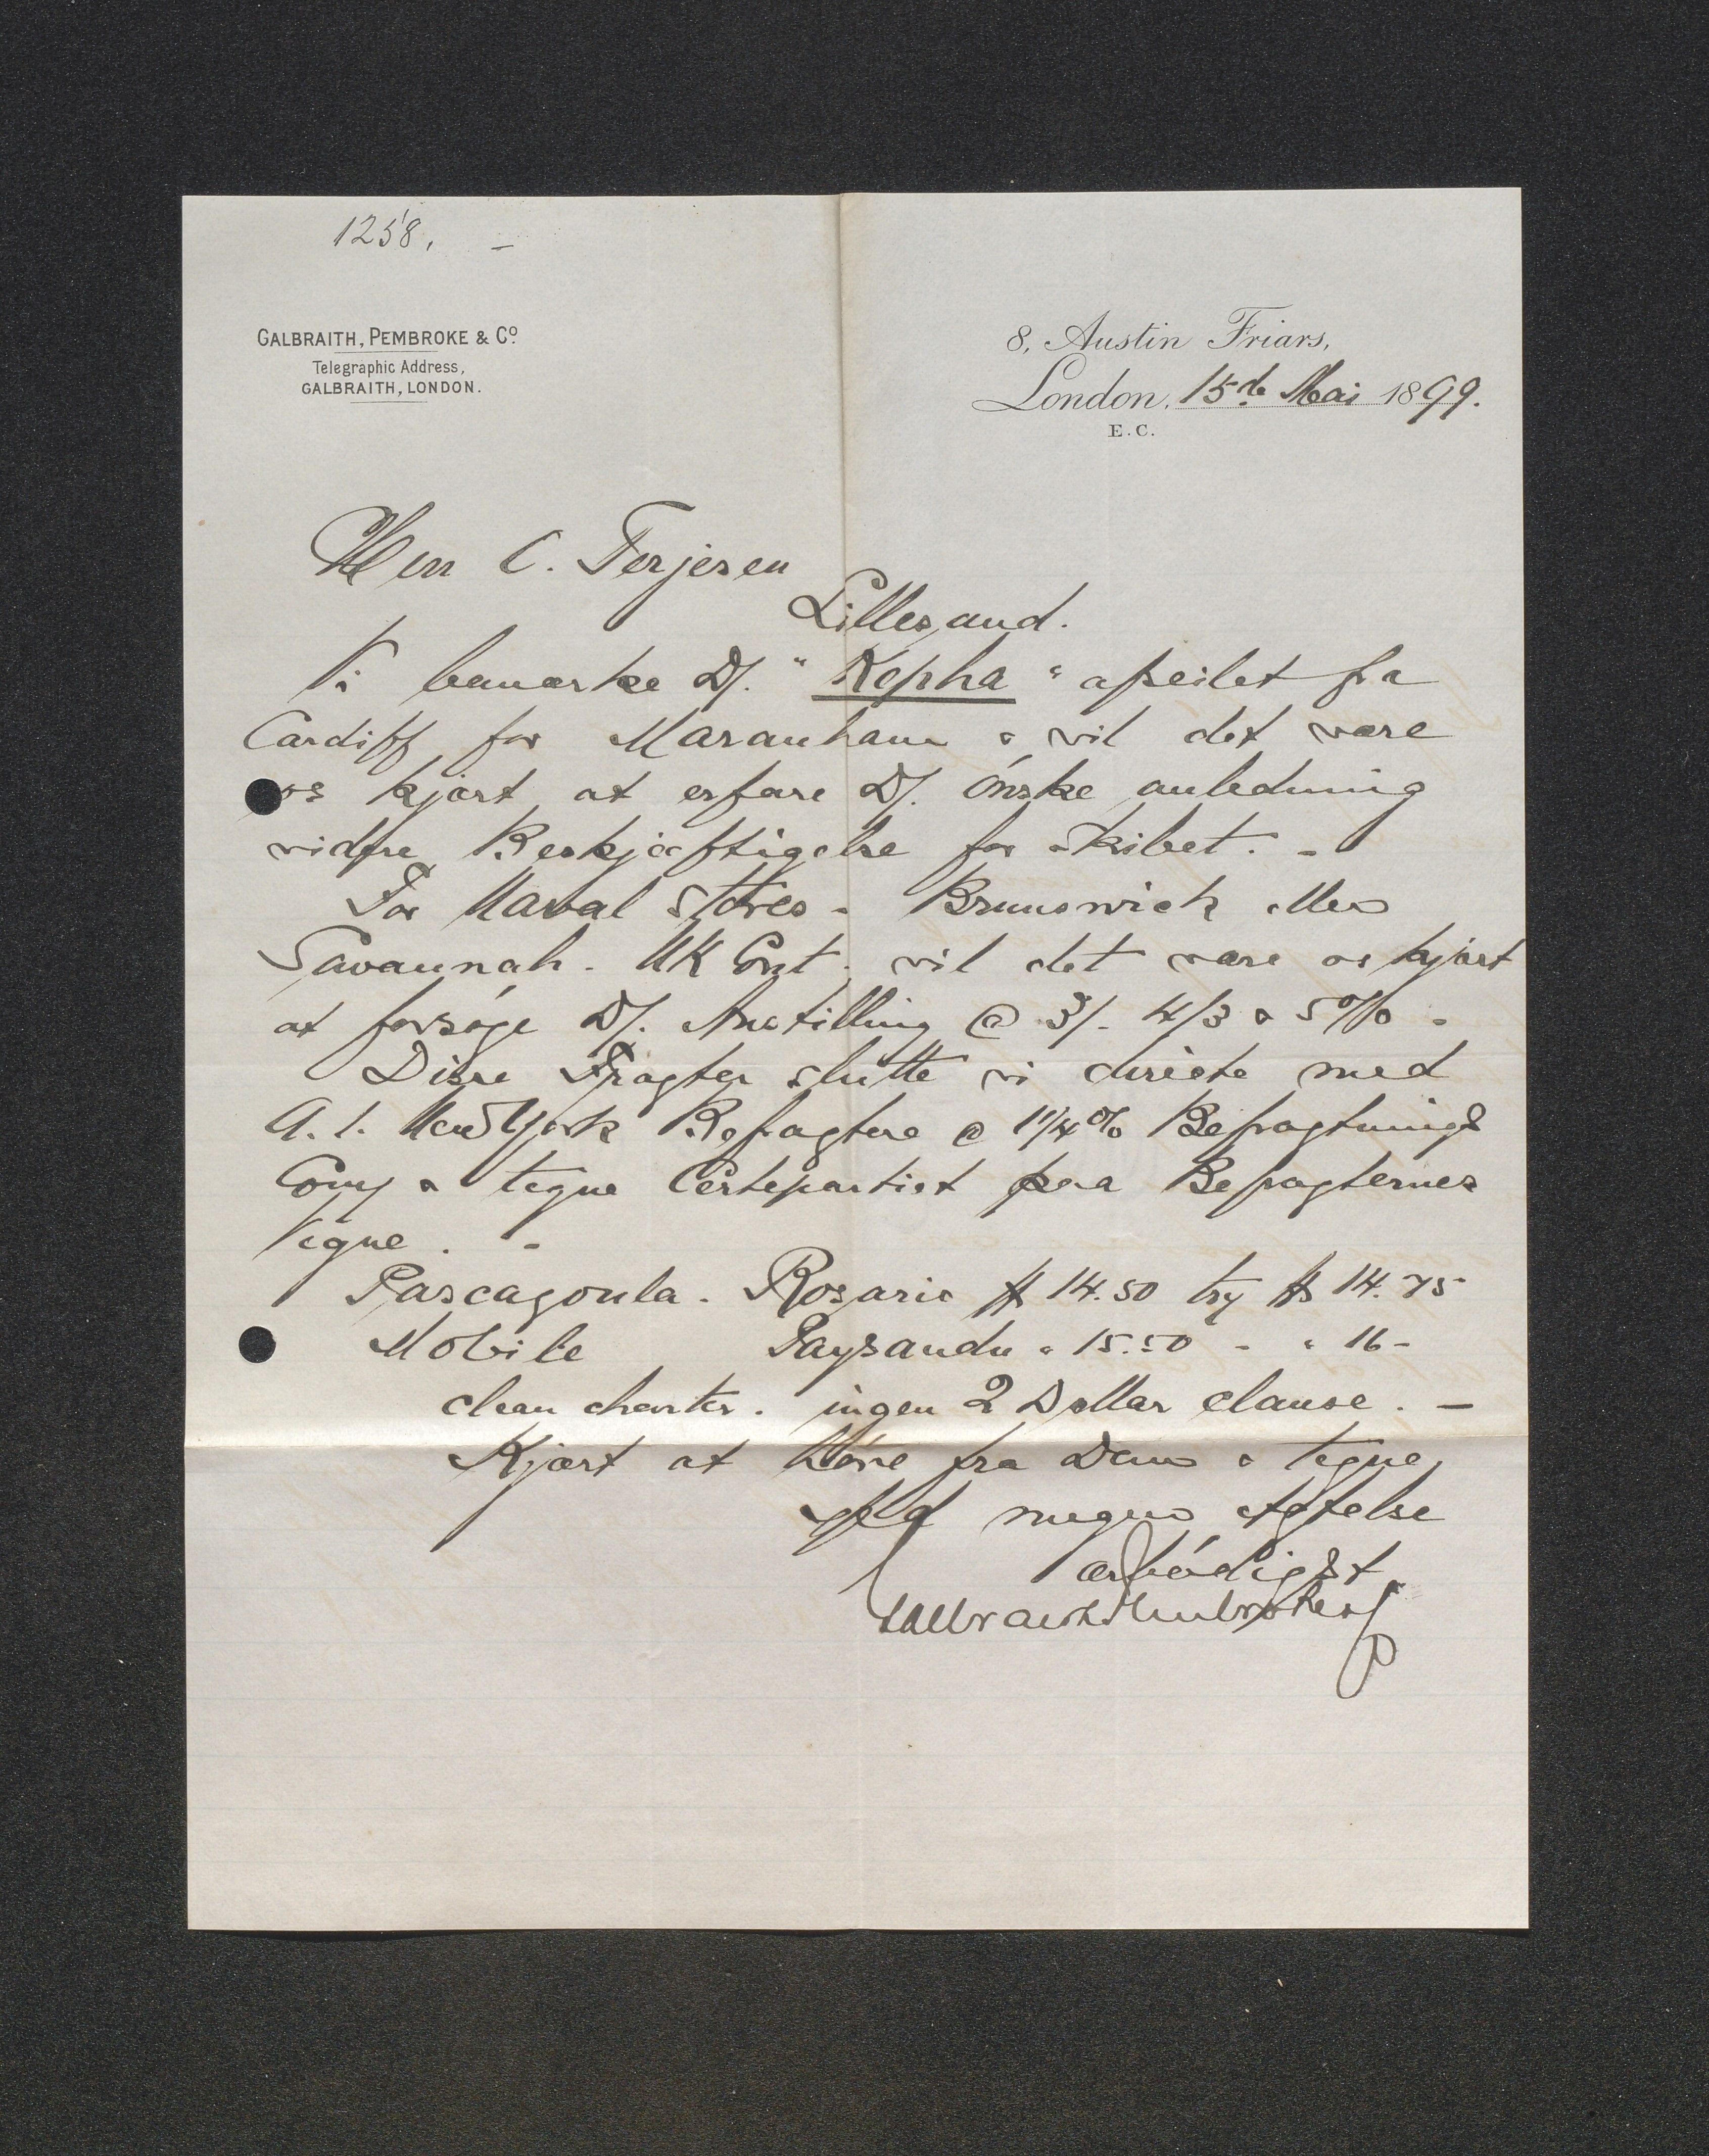 1258. -
GALBRAITH, PEMBROKE & Co.
Telegraphic Address,
GALBRAITH, LONDON.
8, Austin Friars,
London, 15de Mai 1899.
E.C.
Herr C. Terjesen
Lillesand.
Vi bemærke D/. "Kepha" afseilet fra
Cardiff for Maranham & vil det være
os kjært at erfare D/. Ønske anledning
vidre Beskjæftigelse for Skibet. -
For Naval Stores - Brunswick
Savannah. UK Cont. vil det være os kjært
at forsøge D/. Anstilling @ 3/- 4/3 & 5% -
Disse Fragter slutte vi directe med
A. 1. New York Befragtere @ 1 1/4% Befragtnings
Comn & tegne Certepartiet paa Befragternes
Vegne. -
Pascagoula - Rosario $ 14.50 try $ 14.75
Mobile Paysandu " 15.50 - " 16-
clean charter. ingen 2 Dollar clause. -
Kjært at høre fra Dem & tegne
megen Agtelse
ærbødigst
Galbraith Pembroke & Co